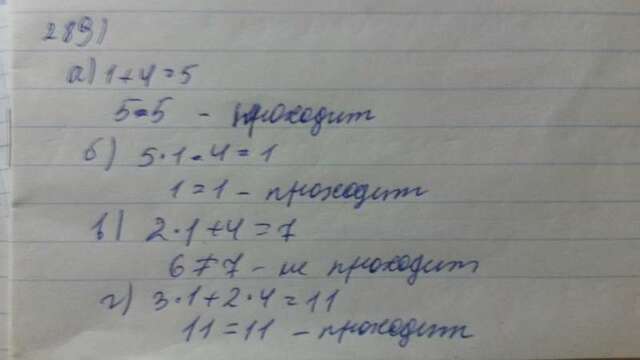 289)
а) 1+4=5
5=5 - проходит
б) 5·1-4=1
1=1 - проходит
в) 2·1+4=7
6≠7 - не проходит
г) 3·1+2·4=11
11=11 - проходит